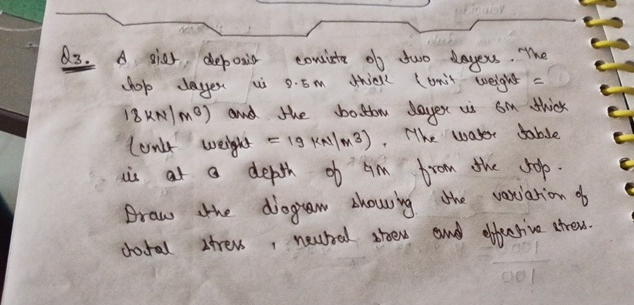 Q3. A silt deposit consists of two layers. The
top layer is 2.5m thick (unit weight =
18 KN/m3) and the bottom layer is 6m thick
(unit weight = 19 KN/m3). The water table
is at a depth of 4m from the top.
Draw the diagram showing the variation of
total stress, neutral stress and effective stress.